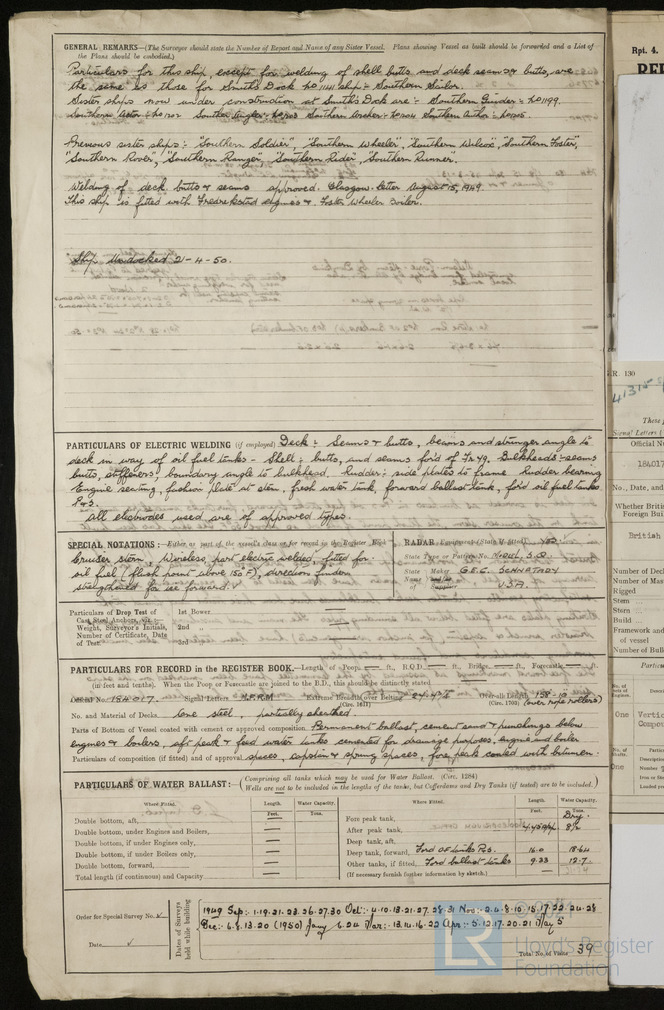 GENERAL REMARKS—(The Surveyor should state the Number of Report and Name of any Sister Vessel. Plans showing Vessel as built should be forwarded and a List of
the Plans should be embodied.)
Particulars for this ship, except for welding of shell butts and deck seams & butts, are
the same as those for Smith's Dock No 1141 ship:- Southern Sailor.
Sister ships now under construction at Smith's Dock are:- Southern Guider:- No 1199.
Southern Actor:- No 1202. Southern Angler:- No 1203 Southern Broker:- No 1204 Southern Author:- No 1205.
Previous sister ships:- "Southern Soldier", "Southern Wheeler", "Southern Wilcox", "Southern Foster",
"Southern Rover", "Southern Ranger", "Southern Rider", Southern Runner".
Welding of deck butts & seams approved. Glasgow Letter August 15, 1949.
This ship is fitted with Fredrikstad engines & Foster Wheeler boiler.
Ship Undocked 21-4-50.
PARTICULARS OF ELECTRIC WELDING (if employed) Deck:- Seams & butts, beams and stringer angle to
deck in way of oil fuel tanks - Shell:- butts, and seams for'd of Fr 49. Bulkheads:- seams
butts, stiffeners, boundary angle to bulkhead. Rudder:- side plates to frame Rudder bearing
Engine seating, fashion plate at stem, fresh water tank, forward ballast tank, for'd oil fuel tanks
P&S.
All electrodes used are of approved types.
SPECIAL NOTATIONS:—Either as part of the vessel's class or for record in the Register Book
Cruiser stern, Wireless, part electric welded, fitted for
oil fuel (flash point above 150°F), direction finder
strengthened for ice forward.
RADAR Equipment (State if fitted) Yes
State Type or Pattern No.
State Name Maker and/or of Supplier G.E.C. SCHNATADY
U.S.A.
Particulars of Drop Test of
Cast Steel Anchors, viz.:—
Weight, Surveyor's Initials,
Number of Certificate, Date
of Test.
1st Bower
2nd "
3rd "
PARTICULARS FOR RECORD in the REGISTER BOOK.—Length of Poop, — ft., R.Q.D. — ft., Bridge — ft., Forecastle — ft.
(in feet and tenths). When the Poop or Forecastle are joined to the B.D., this should be distinctly stated
Official No. 184017. Signal Letters Extreme Breadth over Belting (Circ. 1611) Over-all Length (Circ. 1703) (over rope rollers)
No. and Material of Decks One steel, partially sheathed.
Parts of Bottom of Vessel coated with cement or approved composition Permanent ballast, cement sand & punchings below
engines & boilers, aft peak & feed water tanks cemented for drainage purposes, engine and boiler
Particulars of composition (if fitted) and of approval spaces, capstan & spring spaces, fore peak coated with bitumen.
PARTICULARS OF WATER BALLAST:—(Comprising all tanks which may be used for Water Ballast. (Circ. 1284)
Wells are not to be included in the lengths of the tanks, but Cofferdams and Dry Tanks (if fitted) are to be included.)
Where Fitted. Length. Feet. Water Capacity. Tons.
Double bottom, aft, —
Double bottom, under Engines and Boilers, —
Double bottom, if under Engines only, —
Double bottom, if under Boilers only, —
Double bottom, forward, —
Total length (if continuous) and Capacity —
Where Fitted. Length. Feet. Water Capacity. Tons.
Fore peak tank, Dry.
After peak tank,
Deep tank, aft,
Deep tank, forward, For'd OF tanks P&S. 16.0 18.64
Other tanks, if fitted, For'd ballast tanks 9.33 12.7
(If necessary furnish further information by sketch.)
Order for Special Survey No.
Date
Dates of Surveys held while building
1949 Sep:- 1.19.21.23.26.27.30 Oct:- 4.10.13.21.27.28.31 Nov:- 2.4.8.10.15.17.22.24.28
Dec:- 6.8.13.20 (1950) Jany 6.24 Mar:- 13.14.16.22 Apr:- 5.12.17.20.21 May 5
Total No. of Visits 39
Lloyd's Register
Foundation
LR
Rpt. 4.
R. 130
These
Signal Letters
Official No
184017
No., Date, and
Whether British
Foreign Built
British
Number of Decks
Number of Mas
Rigged
Stem
Stern
Build
Framework and
of vessel
Number of Bulk
One
Vertic
Compou
One